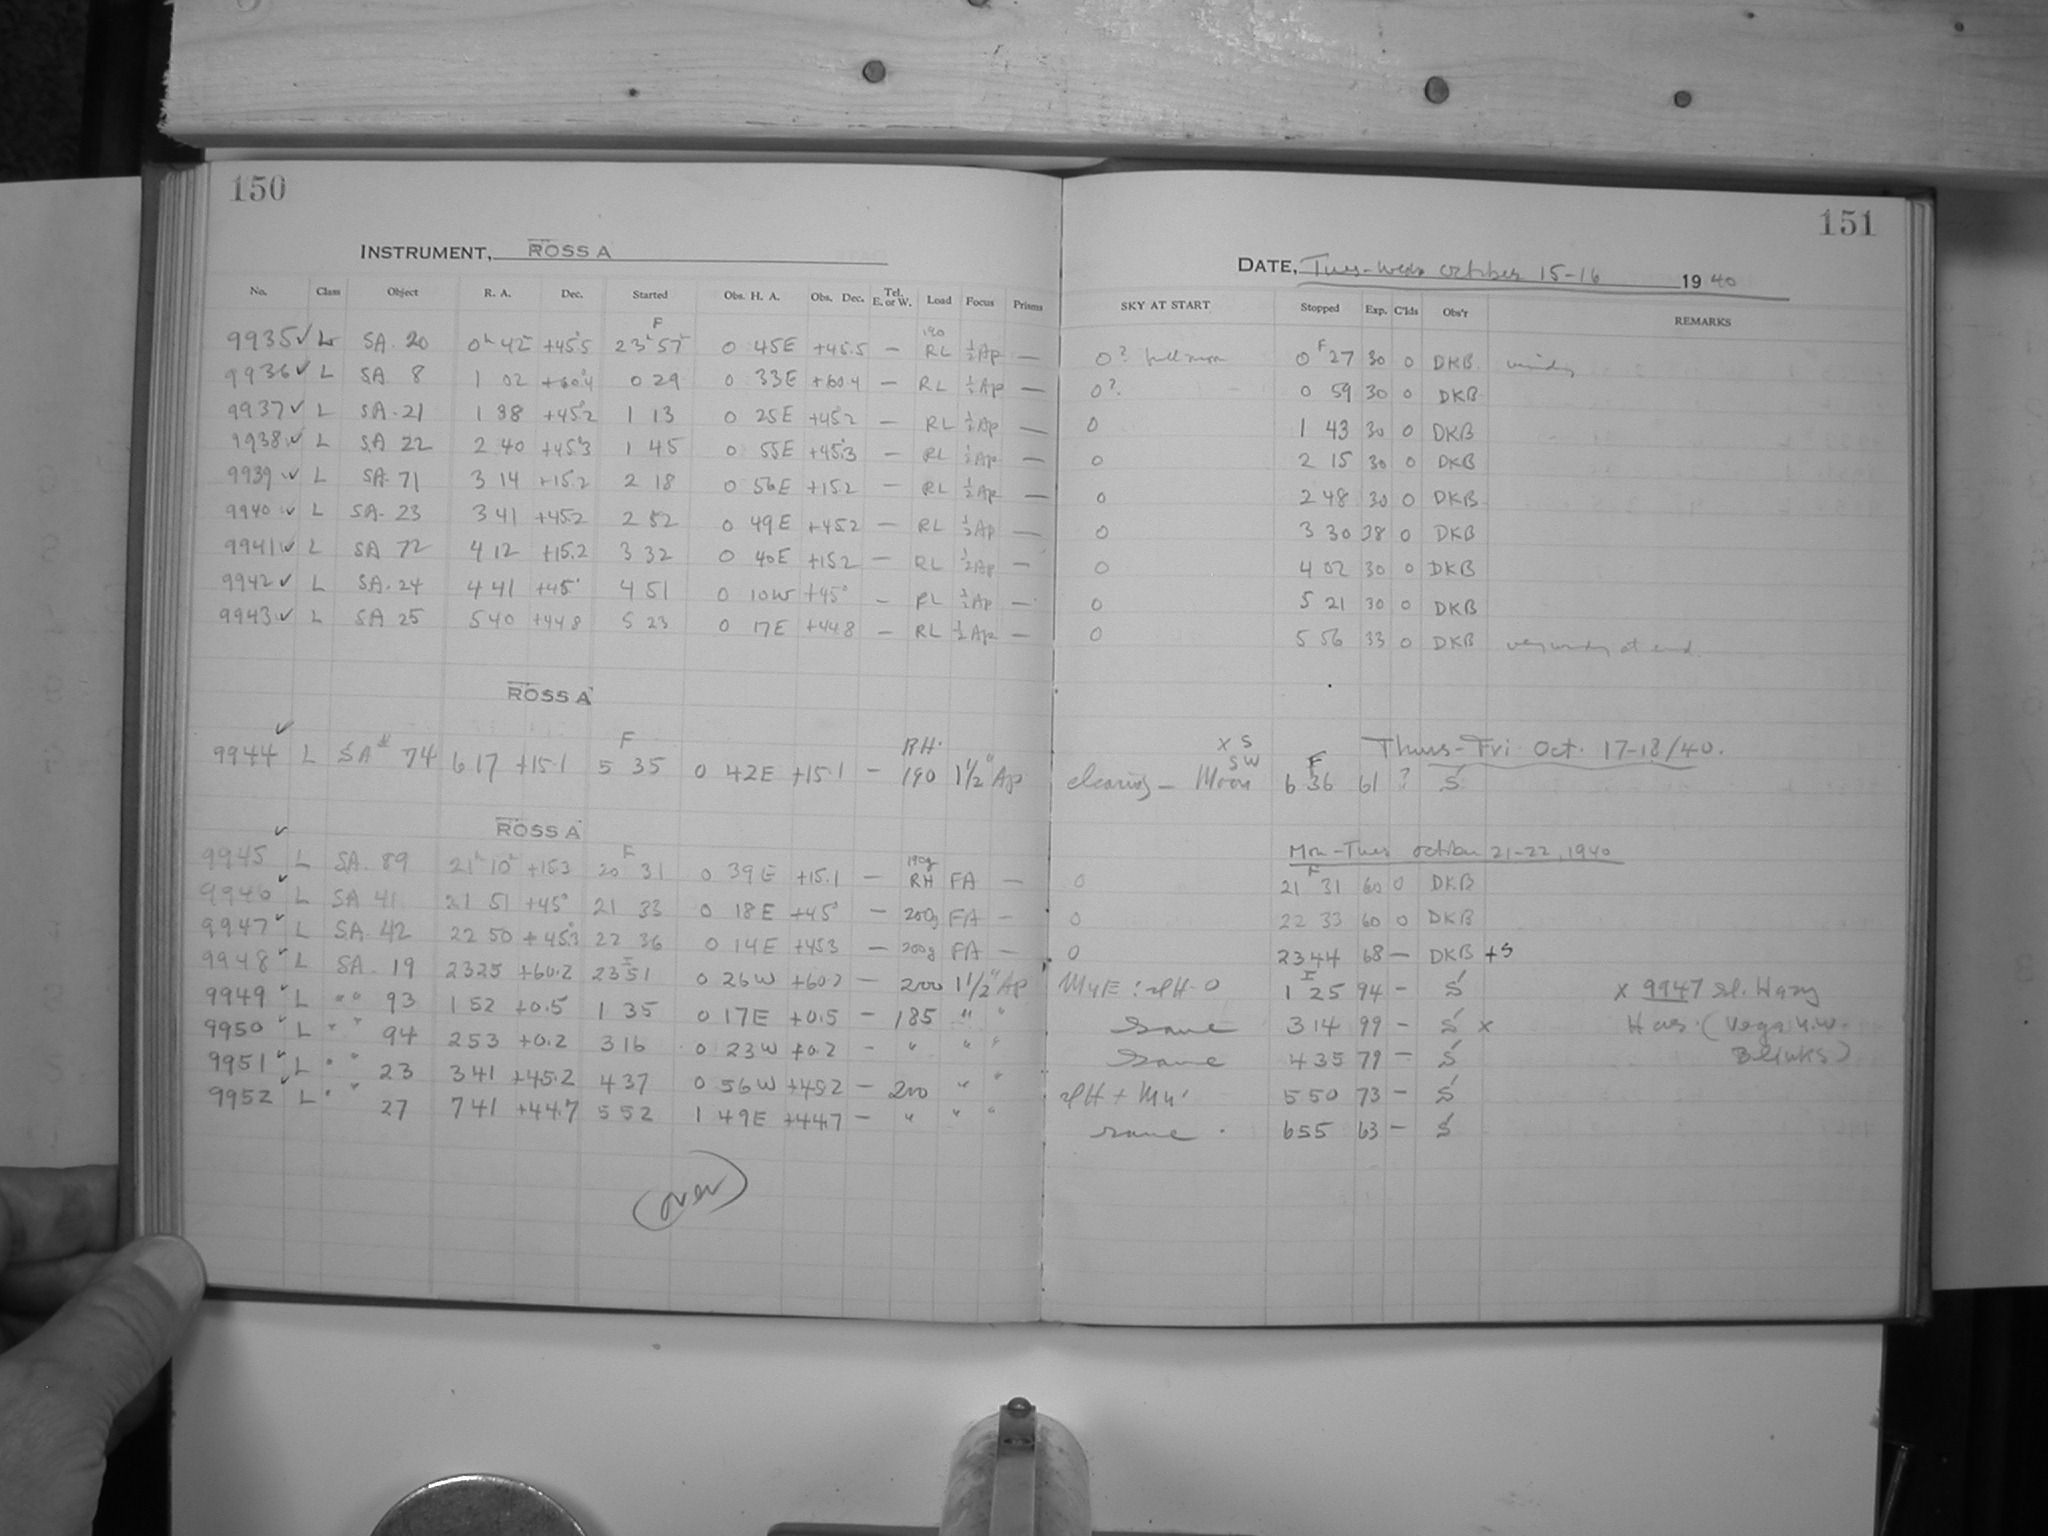 150
INSTRUMENT, ROSS A
No. Class Object R. A. Dec. Started Obs. H. A. Obs. Dec. Tel. E. or W. Load Focus Prisms
9935 ✓ L SA. 20 0h 42 +45.5 23h 57 F 0 45E +45.5 — 190 RL ½Ap —
9936 ✓ L SA 8 1 02 +60.4 0 29 0 33E +60.4 — RL ½Ap —
9937 ✓ L SA. 21 1 38 +45.2 1 13 0 25E +45.2 — RL ½Ap —
9938 ✓ L SA 22 2 40 +45.3 1 45 0 55E +45.3 — RL ½Ap —
9939 ✓ L SA. 71 3 14 +15.2 2 18 0 56E +15.2 — RL ½Ap —
9940 ✓ L SA. 23 3 41 +45.2 2 52 0 49E +45.2 — RL ½Ap —
9941 ✓ L SA 72 4 12 +15.2 3 32 0 40E +15.2 — RL ½Ap —
9942 ✓ L SA. 24 4 41 +45° 4 51 0 10W +45° — RL ½Ap —
9943 ✓ L SA 25 5 40 +44.8 5 23 0 17E +44.8 — RL ½Ap —
ROSS A
9944 ✓ L SA 74 6 17 +15.1 5 35 F 0 42E +15.1 — RH. 190 1½" Ap
ROSS A
9945 ✓ L SA. 89 21h 10 +15.3 20 31 F 0 39E +15.1 — 190g RH FA —
9946 ✓ L SA 41 21 51 +45° 21 33 0 18E +45° — 200g FA —
9947 ✓ L SA. 42 22 50 +45.3 22 36 0 14E +45.3 — 200g FA —
9948 ✓ L SA. 19 23 25 +60.2 23 51 I 0 26W +60.2 — 200 1½" Ap
9949 ✓ L " " 93 1 52 +0.5 1 35 0 17E +0.5 — 185 " "
9950 ✓ L " " 94 2 53 +0.2 3 16 0 23W +0.2 — " " "
9951 ✓ L " " 23 3 41 +45.2 4 37 0 56W +45.2 — 200 " "
9952 ✓ L " " 27 7 41 +44.7 5 52 1 49E +44.7 — " " "
(over)
151
DATE, Tues-Weds October 15-16 1940
SKY AT START Stopped Exp. C'lds Obs'r REMARKS
0? full moon 0 27 F 30 0 DKB. windy
0? 0 59 30 0 DKB
0 1 43 30 0 DKB
0 2 15 30 0 DKB
0 2 48 30 0 DKB
0 3 30 38 0 DKB
0 4 02 30 0 DKB
0 5 21 30 0 DKB
0 5 56 33 0 DKB very windy at end.
Thurs-Fri Oct. 17-18/40.
X S SW
clearing — Moon 6 36 F 61 ? S
Mon-Tues October 21-22, 1940
0 21 31 F 60 0 DKB
0 22 33 60 0 DKB
0 23 44 68 — DKB +S
1 25 I 94 — S x 9947 sl. Hazy
same 3 14 99 — S x Has (Vega N.W.
same 4 35 79 — S Blinks)
5 50 73 — S
same . 6 55 63 — S